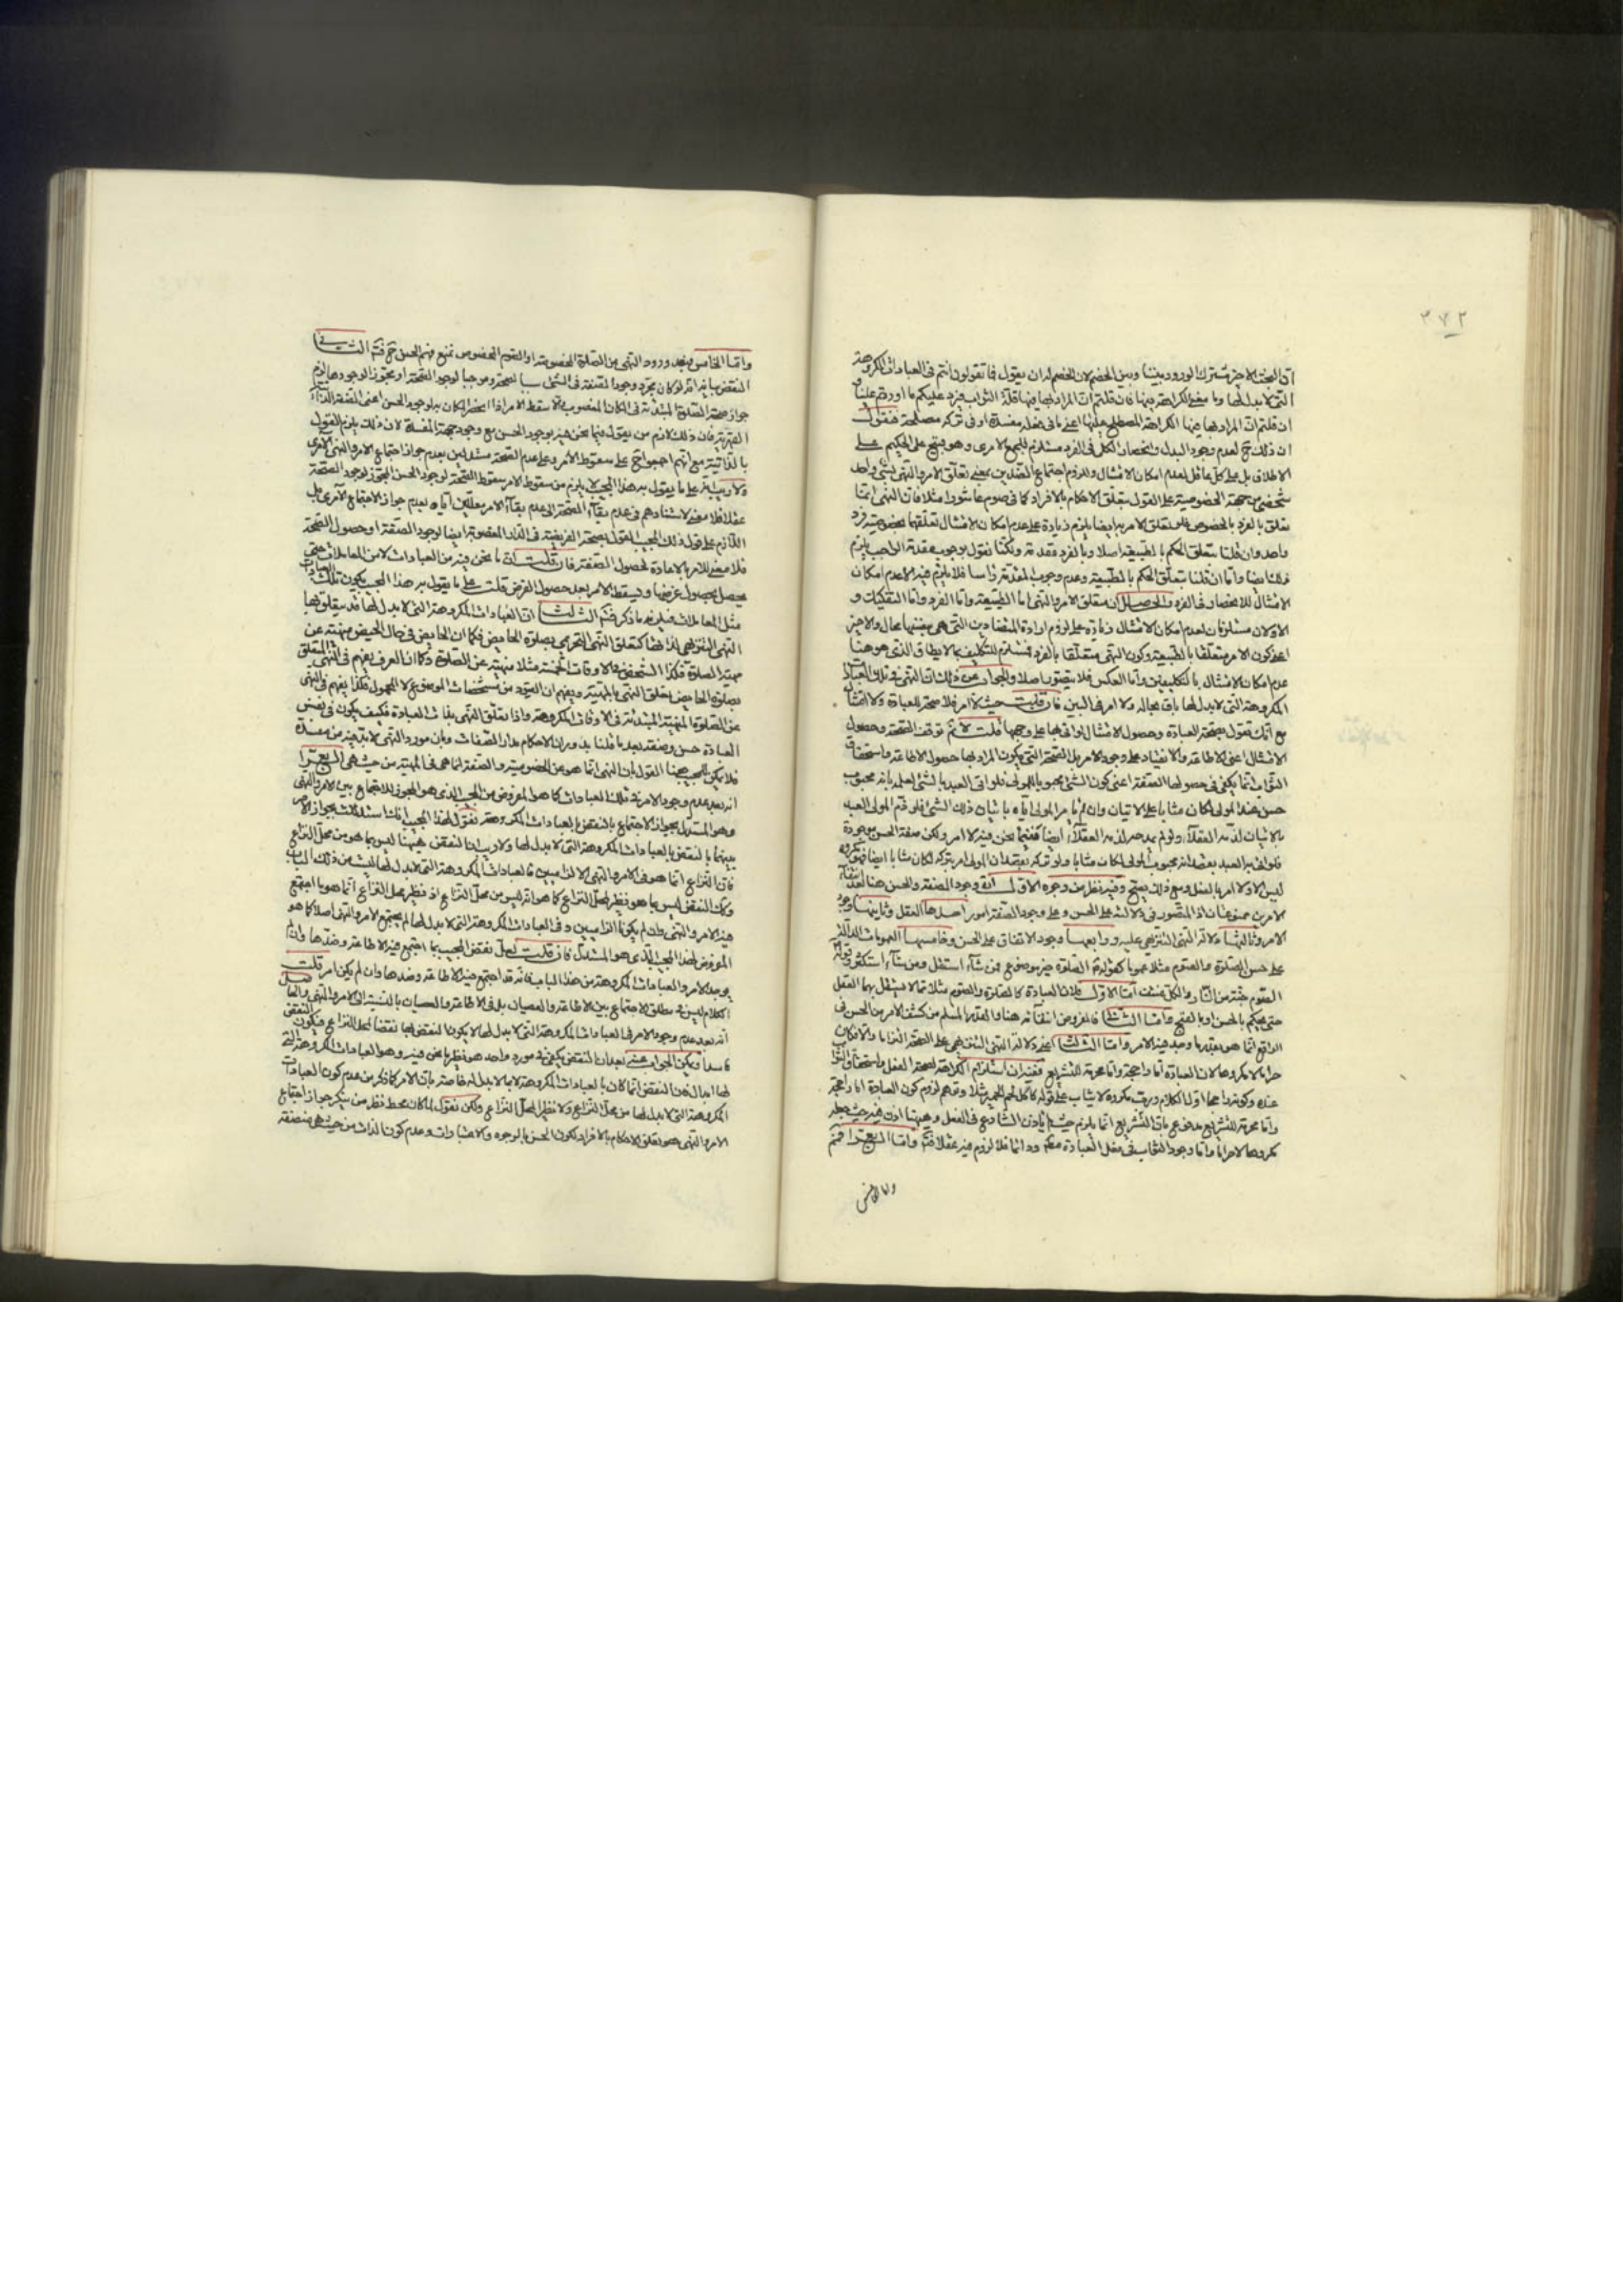 ٣٧٢
ان البحث الاخير مشترك الورود بيننا وبين الخصم لان الخصم له ان يقول فما تقولون انتم فى العبادات المكروهة
التى لا بدل لها وما معنى الكراهة فيها فان قلتم ان المراد بها فيها قلة الثواب فيرد عليكم ما اوردتم علينا و
ان قلتم ان المراد بها فيها الكراهة المصطلح عليها اعنى ما فى فعله مفسدة او فى تركه مصلحة فنقول
ان ذلك ح لعدم وجود البدل وانحصار الكلى فى الفرد مستلزم للجمع الامرى وهو قبيح على الحكيم على
الاطلاق بل على كل عاقل لعدم امكان الامتثال وللزوم اجتماع الضدين بمعنى تعلق الامر والنهى بشئ واحد
شخصى من جهة الخصوصية على القول بتعلق الاحكام بالافراد كما فى صوم عاشورا مثلا فان النهى انما
تعلق بالفرد بالخصوص فلو تعلق الامر به ايضا يلزم زيادة على عدم امكان الامتثال تعلقهما بخصوصية فرد
واحد وان قلنا بتعلق الحكم بالطبيعة اصلا وبالفرد مقدمة ولكنا نقول بوجوب مقدمة الواجب يلزم
ذلك ايضا واما ان قلنا بتعلق الحكم بالطبيعة وعدم وجوب المقدمة راسا فلا يلزم فيه الا عدم امكان
الامتثال للانحصار فى الفرد والحاصل ان متعلق الامر والنهى اما الطبيعة واما الفرد واما التفكيك و
الاولان مستلزمان لعدم امكان الامتثال زيادة على لزوم ارادة المتضادين التى هى بنفسها محال والاخير
اعنى كون الامر متعلقا بالطبيعة وكون النهى متعلقا بالفرد مستلزم للتكليف بما لا يطاق الذى هو هنا
عدم امكان الامتثال بالتكليفين واما العكس فلا يتصور اصلا والجواب عن ذلك ان النهى فى تلك العبادات
المكروهة التى لا بدل لها باق بحاله ولا امر فى البين فان قلت حيث لا امر فلا صحة للعبادة ولا امتثال
مع انك تقول بصحة العبادة وحصول الامتثال لو اتى بها على وجهها قلت لا نم توقف الصحة وحصول
الامتثال اعنى الاطاعة والانقياد على وجود الامر بل الصحة التى يكون المراد بها حصول الاطاعة واستحقاق
الثواب انما يكفى فى حصولها الصفة اعنى كون الشئ محبوبا للمولى فلو اتى العبد بالشئ لعلمه بانه محبوب
حسن عند المولى لكان مثابا على الاتيان وان لم يامر المولى اياه باتيان ذلك الشئ فلو ذم المولى العبد
بالاتيان لذمه العقلاء ولو لم يمدحه لذمه العقلاء ايضا ففيما نحن فيه لا امر ولكن صفة الحسن موجودة
فلو اتى به العبد بقصد انه محبوب المولى لكان مثابا ولو تركه بقصد ان المولى امر بتركه لكان مثابا ايضا
ليس الا الامر بالفعل ومع ذلك يصح وفيه نظر من وجوه الاول ان وجود الصفة والحسن هنا
الامرين ممنوعان اذ المتصور فى دلالته على الحسن وعلى وجود الصفة امور احدها العقل وثانيها وجود
الامر وثالثها دلالة النهى التنزيهى عليه ورابعها وجود الاتفاق على الحسن وخامسها العمومات الدالة
على حسن الصلوة والصوم مثلا عموما كقوله ع الصلوة خير موضوع فمن شاء استقل ومن شاء استكثر وقوله
الصوم جنة من النار والكل منتف اما الاول فلان العبادة كالصلوة والصوم مثلا مما لا يستقل بها العقل
حتى يحكم بالحسن او بالقبح واما الثانى فالمفروض انتفائه هنا والقدر المسلم من كشف الامر من الحسن فى
الواقع انما هو بقدر ما وجد فيه الامر واما الثالث اعنى دلالة النهى التنزيهى على الصحة التزاما والا لكان
حراما لا مكروها لان العبادة اما راجحة واما محرمة للتشريع ففيه ان استلزام الكراهة لصحة الفعل واستحقاق الثواب
عنده وكونه راجحا اول الكلام ورب مكروه لا يثاب على قوله كاكل لحم الحمير مثلا وتوهم لزوم كون العبادة اما راجحة
واما محرمة للتشريع مدفوع بان التشريع انما يلزم حيث لم ياذن الشارع فى الفعل وههنا اذن فيه حيث جعله
مكروها لا حراما واما وجود الثواب فى فعل العبادة مطردا دائما فلا لزوم فيه عقلا فتم واما الرابع فنم
واما الخامس
واما الخامس فبعد ورود النهى عن الصلوة المخصوصة او الصوم المخصوص نمنع فهم الحسن ح فتم الثانى
النقض بانه لو كان مجرد وجود الصفة فى الشئ سببا للصحة وموجبا لوجود الصحة او مجوزا لوجودها لزم
جواز صحة الصلوة المبتدئة فى المكان المغصوب
بالذاتية مع انهم اجمعوا ح على سقوط الامر وعلى عدم الصحة مستدلين بعدم جواز اجتماع الامر والنهى الامرى
ولا ريب انه على ما يقول به هذا المجيب لا يلزم من سقوط الامر سقوط الصحة لوجود الحسن المجوز لوجود الصحة
عقلا فلا معنى لاستنادهم فى عدم بقاء الصحة الى عدم بقاء الامر معللين اياه بعدم جواز الاجتماع الامرى بل
اللازم على قول ذلك المجيب القول بصحة الفريضة فى الدار المغصوبة ايضا لوجود الصفة او حصول الصحة
فلا معنى للامر بالاعادة لحصول الصفة فان قلت ان ما نحن فيه من العبادات لا من المعاملات حتى
يحصل بحصول غرضها ويسقط الامر بعد حصول الغرض قلت على ما يقول به هذا المجيب يكون تلك العبادات
مثل المعاملات فيلزمه ما ذكر فتم الثالث ان العبادات المكروهة التى لا بدل لها قد يتعلق بها
النهى التنزيهى لذاتها كتعلق النهى التحريمى بصلوة الحايض فكما ان الحايض فى حال الحيض منهية عن
مهية الصلوة فكذا الشخص فى الاوقات الخمسة مثلا منهية عن الصلوة وكما ان العرف يفهم فى النهى المتعلق
بصلوة الحايض تعلق النهى بالمهية ويفهم ان القيود من مشخصات الموضوع لا المحمول فكذا يفهم فى النهى
عن الصلوة المهية المبتدئة فى الاوقات المكروهة واذا تعلق النهى بذات العبادة فكيف يكون فى نفس
العبادة حسن وصفة بعد ما قلنا بدوران الاحكام مدار الصفات وبان مورد النهى لا بد فيه من مفسدة
فلا يمكن للمجيب هيهنا القول بان النهى انما هو عن الخصوصية والصفة انما هى فى المهية من حيث هى الرابع
انه بعد عدم وجود الامر فى تلك العبادات كما هو المفروض من المجيب الذى هو المجوز للاجتماع بين الامر والنهى
وهو المستدل بجواز الاجتماع بالنقض بالعبادات المكروهة نقول لهذا المجيب انك استدللت بجواز الامر
بينهما بالنقض بالعبادات المكروهة التى لا بدل لها ولا ريب ان النقض هيهنا ليس بما هو من محل النزاع
فان النزاع انما هو فى الامر والنهى الالزاميين فالعبادات المكروهة التى لا بدل لها ليست من ذلك الباب
وكك النقض ليس بما هو نظير لمحل النزاع كما هو انه ليس من محل النزاع اذ نظير محل النزاع انما هو ما اجتمع
فيه الامر والنهى وان لم يكونا الزاميين وفى العبادات المكروهة التى لا بدل لها لم يجتمع الامر والنهى اصلا كما هو
المفروض لهذا المجيب الذى هو المستدل فان قلت لعل نقض المجيب بما اجتمع فيه الاطاعة وضدها وان لم
يوجد الامر والعبادات المكروهة من هذا الباب فانه قد اجتمع فيه الاطاعة وضدها وان لم يكن امر قلت
الكلام ليس فى مطلق الاجتماع بين الاطاعة والعصيان بل فى الاطاعة والعصيان بالنسبة الى الامر والنهى
انه بعد عدم وجود الامر فى العبادات المكروهة التى لا بدل لها لا يكون النقض بها نقضا لمحل النزاع فيكون النقض
فاسدا ويمكن الجواب عنه بعد ان النقض يكفى فى مورد واحد هو نظير ما نحن فيه وهو العبادات المكروهة التى
لها ابدال فان النقض انما كان بالعبادات المكروهة لا بما لا بدل له خاصة بان الامر كما ذكر من عدم كون العبادات
المكروهة التى لا بدل لها من محل النزاع ولا نظير المحل النزاع ولكن نقول لما كان محط نظر من ينكر جواز اجتماع
الامر والنهى هو تعلق الاحكام بالافراد لكون الحسن بالوجوه والاعتبارات وعدم كون الذات من حيث هى متصفة